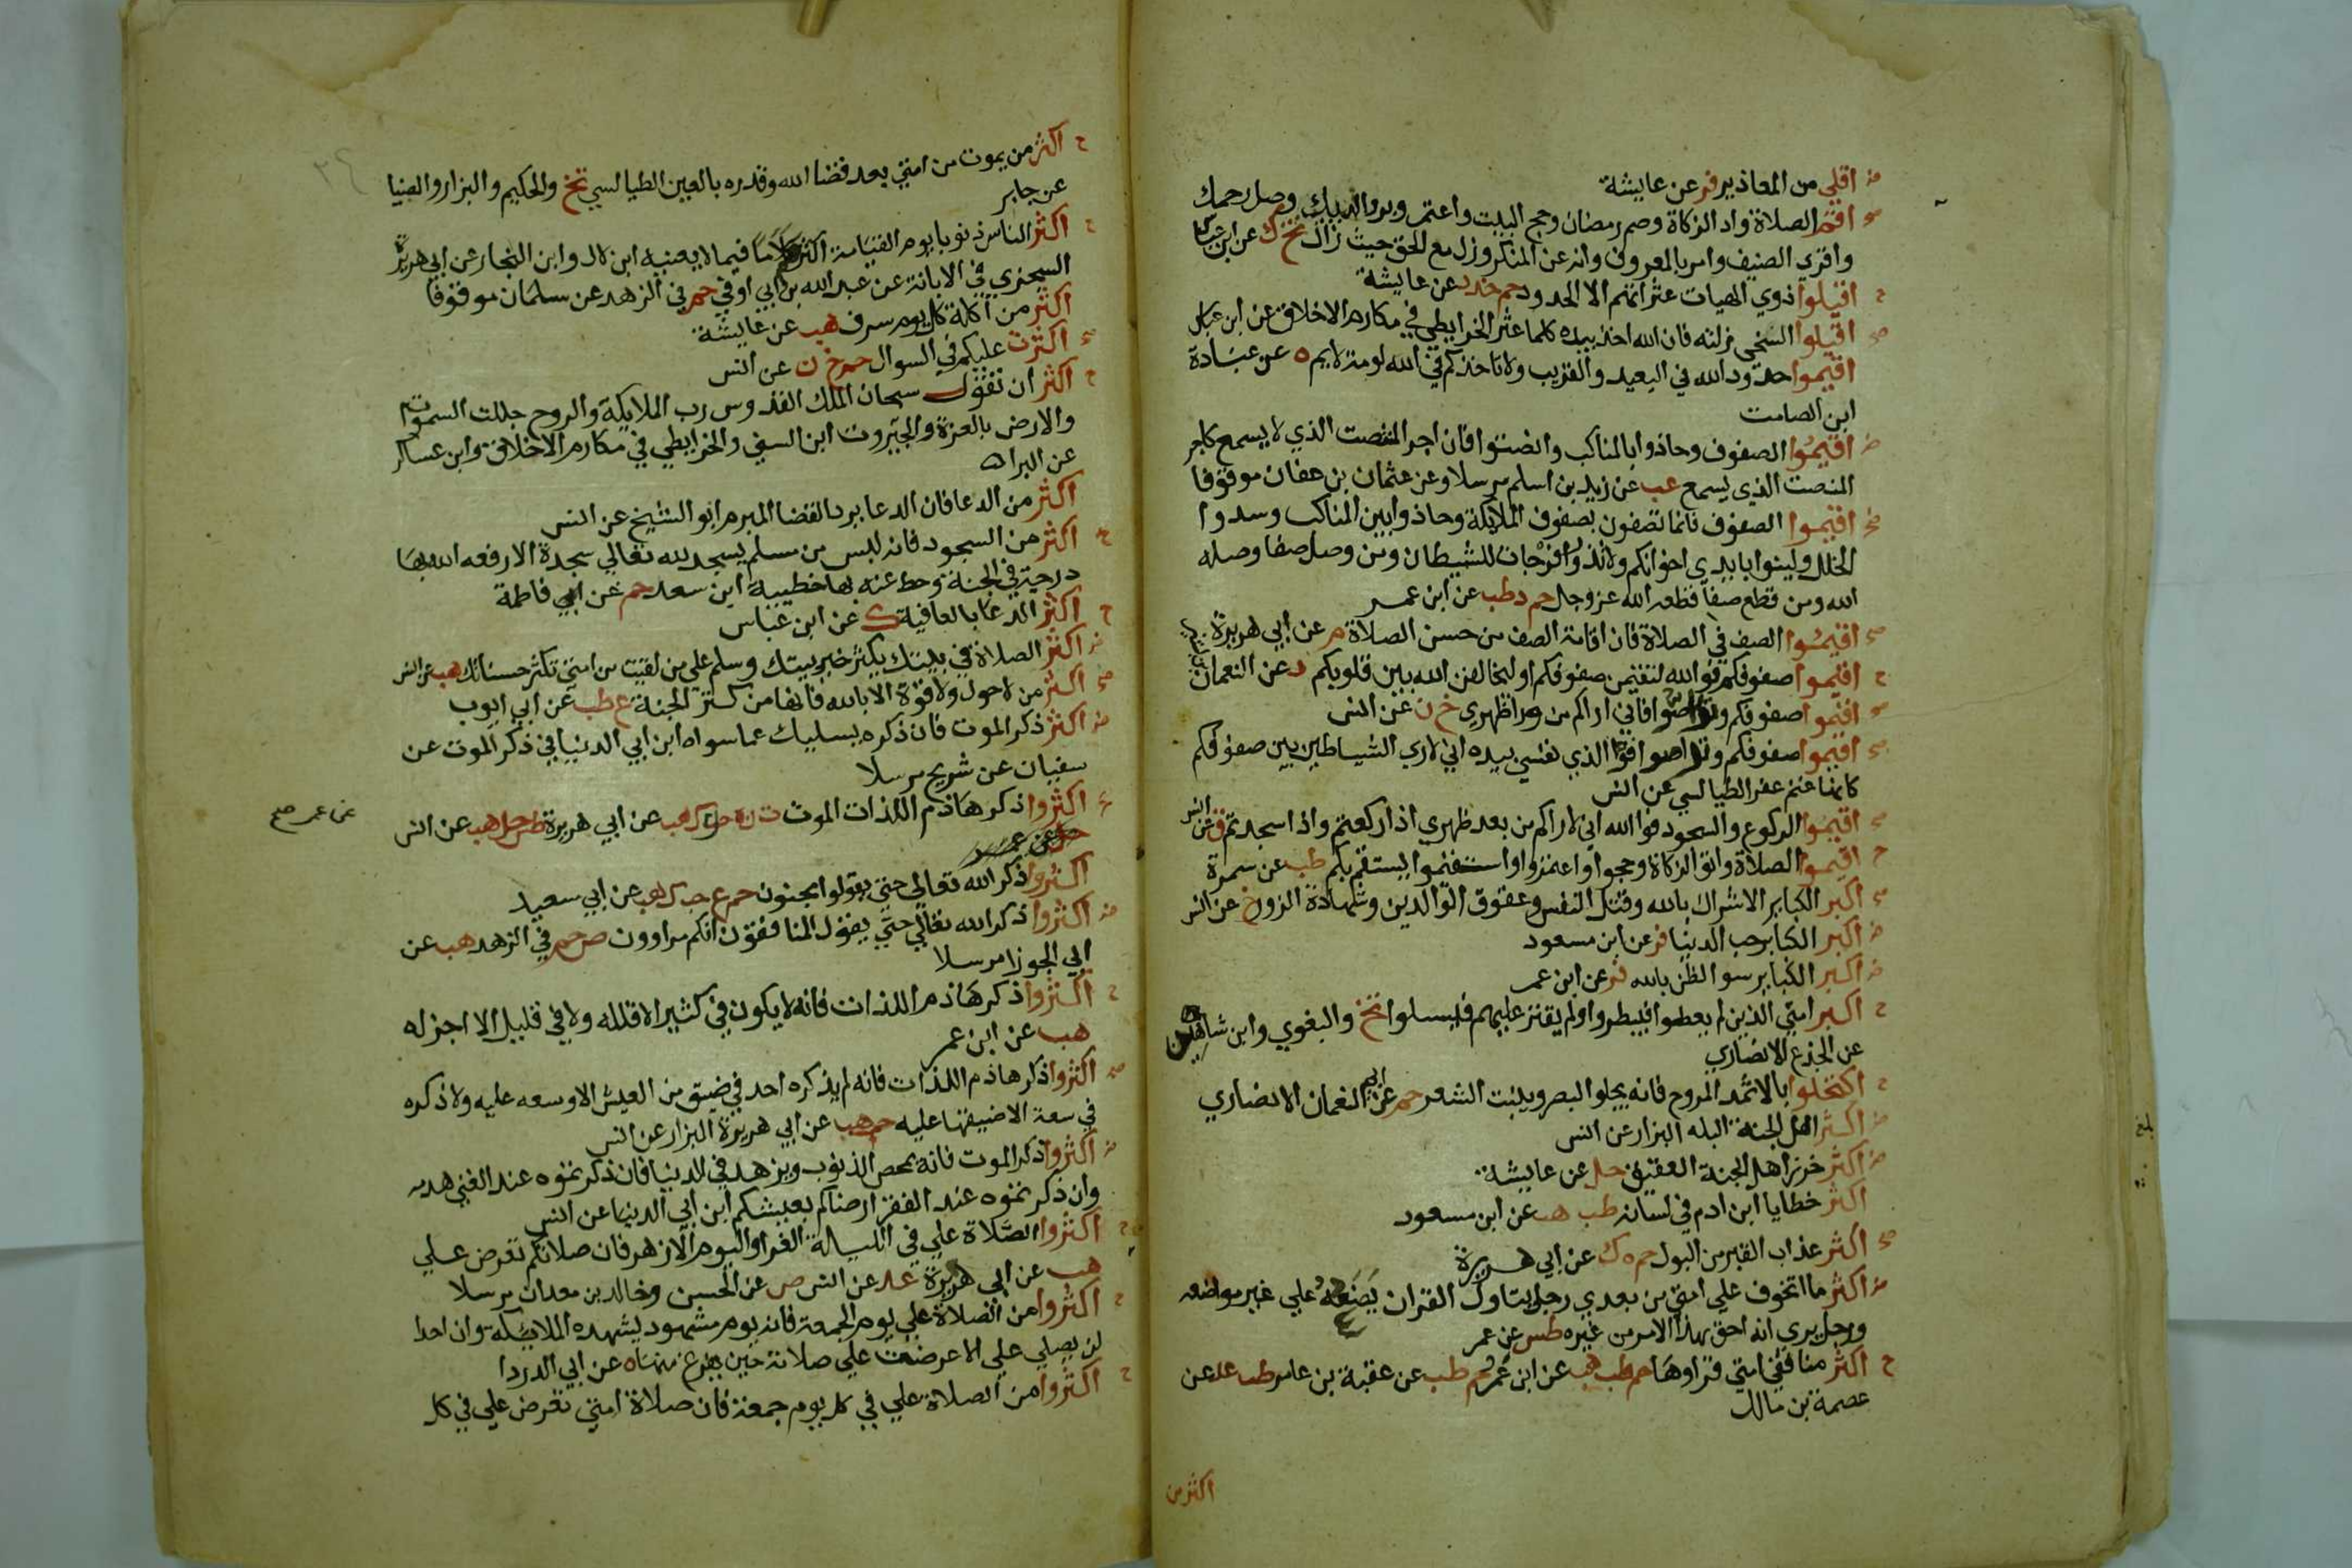 اقلي من المعاذير فر عن عايشة
اقم الصلاة واد الزكاة وصم رمضان وحج البيت واعتمر وبر والديك وصل رحمك
واقري الضيف وامر بالمعروف وانه عن المنكر وزل مع الحق حيث زال تخ ك عن ابن عباس
اقيلوا ذوي الهيات عثراتهم الا الحدود حم خد د عن عايشة
اقيلوا السخي زلته فان الله اخذ بيده كلما عثر الخرايطي في مكارم الاخلاق عن ابن عباس
اقيموا حدود الله في البعيد والقريب ولا تاخذكم في الله لومة لايم ه عن عبادة
ابن الصامت
اقيموا الصفوف وحاذوا بالمناكب وانصتوا فان اجر المنصت الذي لا يسمع كاجر
المنصت الذي يسمع عب عن زيد بن اسلم مرسلا وعن عثمان بن عفان موقوفا
اقيموا الصفوف فانما تصفون بصفوف الملايكة وحاذوا بين المناكب وسدوا
الخلل ولينوا بايدي اخوانكم ولا تذروا فرجات للشيطان ومن وصل صفا وصله
الله ومن قطع صفا قطعه الله عز وجل حم د طب عن ابن عمر
اقيموا الصف في الصلاة فان اقامة الصف من حسن الصلاة م عن ابي هريرة
اقيموا صفوفكم فوالله لتقيمن صفوفكم او ليخالفن الله بين قلوبكم د عن النعمان
اقيموا صفوفكم وتراصوا فاني اراكم من ورا ظهري خ ن عن انس
اقيموا صفوفكم وتراصوا فوالذي نفسي بيده اني لاري الشياطين بين صفوفكم
كانها غنم عفر الطيالسي عن انس
اقيموا الركوع والسجود فوالله اني لاراكم من بعد ظهري اذا ركعتم واذا سجدتم ق عن انس
اقيموا الصلاة واتوا الزكاة وحجوا واعتمروا واستقيموا يستقم بكم طب عن سمرة
اكبر الكباير الاشراك بالله وقتل النفس وعقوق الوالدين وشهادة الزور خ عن انس
اكبر الكباير حب الدنيا فر عن ابن مسعود
اكبر الكباير سو الظن بالله فر عن ابن عمر
اكبر امتي الذين لم يعطوا فيبطروا ولم يقتر عليهم فيسلوا تخ والبغوي وابن شاهين
عن الجذع الانصاري
اكتحلوا بالاثمد المروح فانه يجلوا البصر وينبت الشعر حم عن ابي النعمان الانصاري
اكثر اهل الجنة البله البزار عن انس
اكثر خرز اهل الجنة العقيق حل عن عايشة
اكثر خطايا ابن ادم في لسانه طب هب عن ابن مسعود
اكثر عذاب القبر من البول حم ه ك عن ابي هريرة
اكثر ما اتخوف علي امتي من بعدي رجل يتاول القران يضعه علي غير مواضعه
ورجل يري انه احق بهذا الامر من غيره طس عن عمر
اكثر منافقي امتي قراوها حم طب هب عن ابن عمر حم طب عن عقبة بن عامر طب عد عن
عصمة بن مالك
اكثر من
اكثر من يموت من امتي بعد قضا الله وقدره بالعين الطيالسي تخ والحكيم والبزار والضيا
عن جابر
اكثر الناس ذنوبا يوم القيامة اكثرهم كلاما فيما لا يعنيه ابن لال وابن النجار عن ابي هريرة
السجزي في الابانة عن عبد الله بن ابي اوفي حم في الزهد عن سلمان موقوفا
اكثر من اكلة كل يوم سرف هب عن عايشة
اكثرت عليكم في السواك حم خ ن عن انس
اكثر ان تقول سبحان الملك القدوس رب الملايكة والروح جللت السموات
والارض بالعزة والجبروت ابن السني والخرايطي في مكارم الاخلاق وابن عساكر
عن البرا
اكثر من الدعا فان الدعا يرد القضا المبرم ابو الشيخ عن انس
اكثر من السجود فانه ليس من مسلم يسجد لله تعالي سجدة الا رفعه الله بها
درجة في الجنة وحط عنه بها خطيية ابن سعد حم عن ابي فاطمة
اكثر الدعا بالعافية ك عن ابن عباس
اكثر الصلاة في بيتك يكثر خير بيتك وسلم علي من لقيت من امتي تكثر حسناتك هب عن انس
اكثر من لا حول ولا قوة الا بالله فانها من كنز الجنة ع طب عن ابي ايوب
اكثر ذكر الموت فان ذكره يسليك عما سواه ابن ابي الدنيا في ذكر الموت عن
سفيان عن شريح مرسلا
اكثروا ذكر هاذم اللذات الموت ت ن ه حب ك هب عن ابي هريرة طس حل هب عن انس
حل عن عمر
عن عمر صح
اكثروا ذكر الله تعالي حتي يقولوا مجنون حم ع حب ك هب عن ابي سعيد
اكثروا ذكر الله تعالي حتي يقول المنافقون انكم مراوون ص حم في الزهد هب عن
ابي الجوزا مرسلا
اكثروا ذكر هاذم اللذات فانه لا يكون في كثير الا قلله ولا في قليل الا اجزله
هب عن ابن عمر
اكثروا ذكر هاذم اللذات فانه لم يذكره احد في ضيق من العيش الا وسعه عليه ولا ذكره
في سعة الا ضيقها عليه حب هب عن ابي هريرة البزار عن انس
اكثروا ذكر الموت فانه يمحص الذنوب ويزهد في الدنيا فان ذكرتموه عند الغني هدمه
وان ذكرتموه عند الفقر ارضاكم بعيشكم ابن ابي الدنيا عن انس
اكثروا الصلاة علي في الليلة الغرا واليوم الازهر فان صلاتكم تعرض علي
هب عن ابي هريرة عد عن انس ص عن الحسن وخالد بن معدان مرسلا
اكثروا من الصلاة علي يوم الجمعة فانه يوم مشهود يشهده الملايكة وان احدا
لن يصلي علي الا عرضت علي صلاته حين يفرغ منها ه عن ابي الدردا
اكثروا من الصلاة علي في كل يوم جمعة فان صلاة امتي تعرض علي في كل